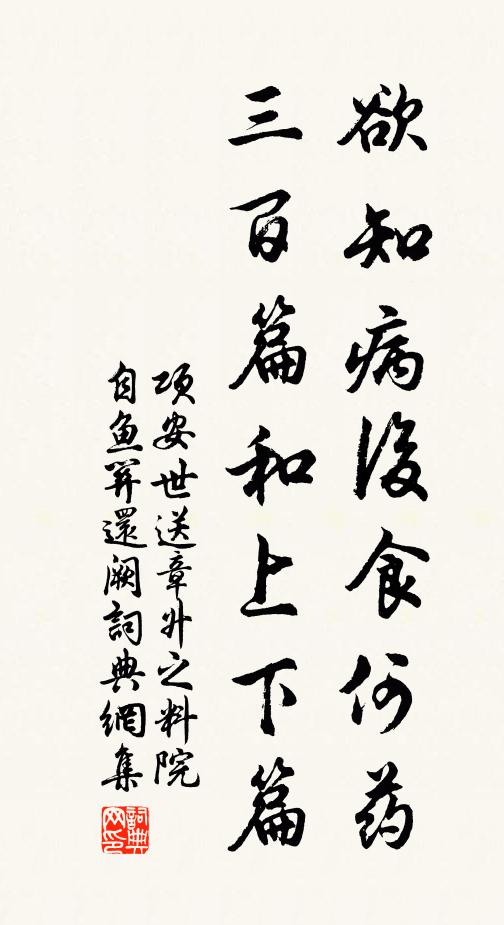 欲知病后食何药
三百篇和上下篇
项安世送章外之料院
自鱼关还阙詞典網集
詞典
网印